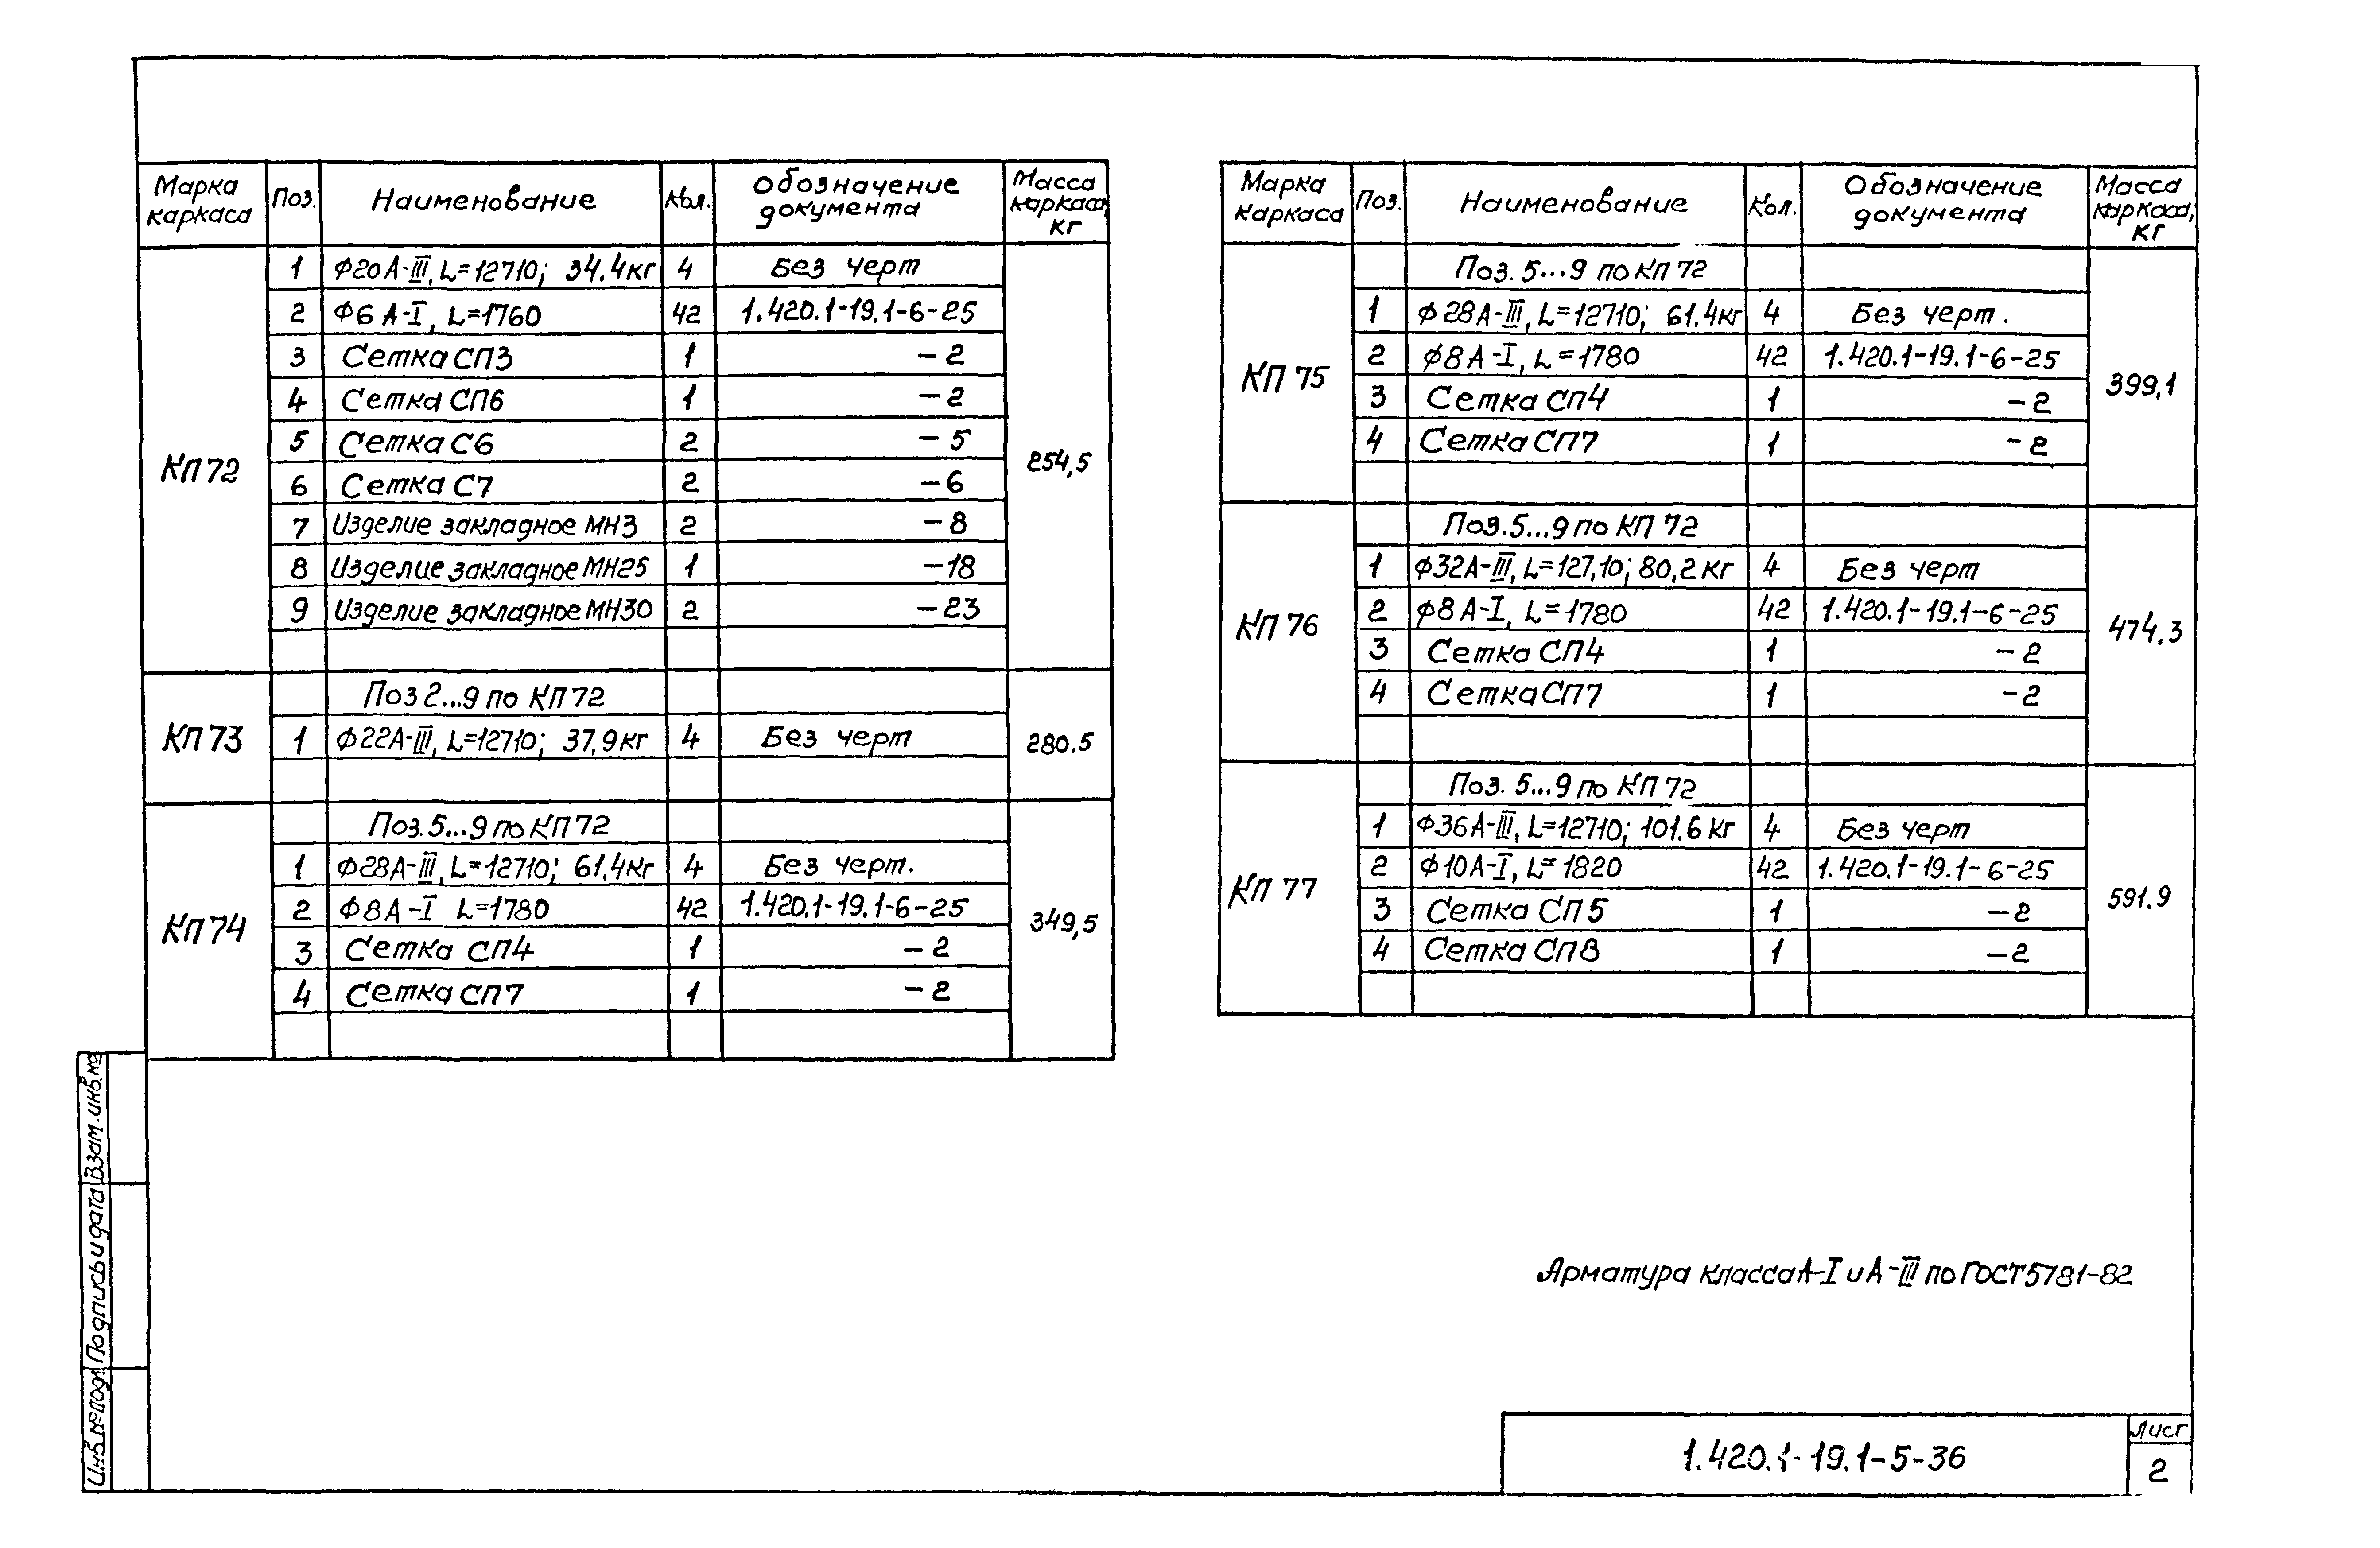 Марка каркаса Поз. Наименование Кол. Обозначение документа Масса каркаса, кг
КП72 254,5
1 Ф20А-III, L=12710; 34.4кг 4 Без черт
2 Ф6 А-I, L=1760 42 1.420.1-19.1-6-25
3 Сетка СП3 1 -2
4 Сетка СП6 1 -2
5 Сетка С6 2 -5
6 Сетка С7 2 -6
7 Изделие закладное МН3 2 -8
8 Изделие закладное МН25 1 -18
9 Изделие закладное МН30 2 -23
КП73 280.5
Поз 2...9 по КП72
1 Ф22А-III, L=12710; 37,9кг 4 Без черт
КП74 349,5
Поз.5...9 по КП72
1 Ф28А-III, L=12710; 61,4кг 4 Без черт.
2 Ф8А-I L=1780 42 1.420.1-19.1-6-25
3 Сетка СП4 1 -2
4 Сетка СП7 1 -2
Марка каркаса Поз. Наименование Кол. Обозначение документа Масса каркаса, кг
КП 75 399,1
Поз. 5...9 по КП 72
1 Ф28А-III, L=12710; 61.4кг 4 Без черт.
2 Ф8А-I, L=1780 42 1.420.1-19.1-6-25
3 Сетка СП4 1 -2
4 Сетка СП7 1 -2
КП 76 474.3
Поз.5...9 по КП 72
1 Ф32А-III, L=127,10; 80,2кг 4 Без черт
2 Ф8А-I, L=1780 42 1.420.1-19.1-6-25
3 Сетка СП4 1 -2
4 Сетка СП7 1 -2
КП 77 591.9
Поз. 5...9 по КП 72
1 Ф36А-III, L=12710; 101.6 кг 4 Без черт
2 Ф10А-I, L=1820 42 1.420.1-19.1-6-25
3 Сетка СП5 1 -2
4 Сетка СП8 1 -2
Арматура класса А-I и А-III по ГОСТ 5781-82
1.420.1-19.1-5-36
Лист
2
Взам. инв. №
Подпись и дата
Инв. № подл